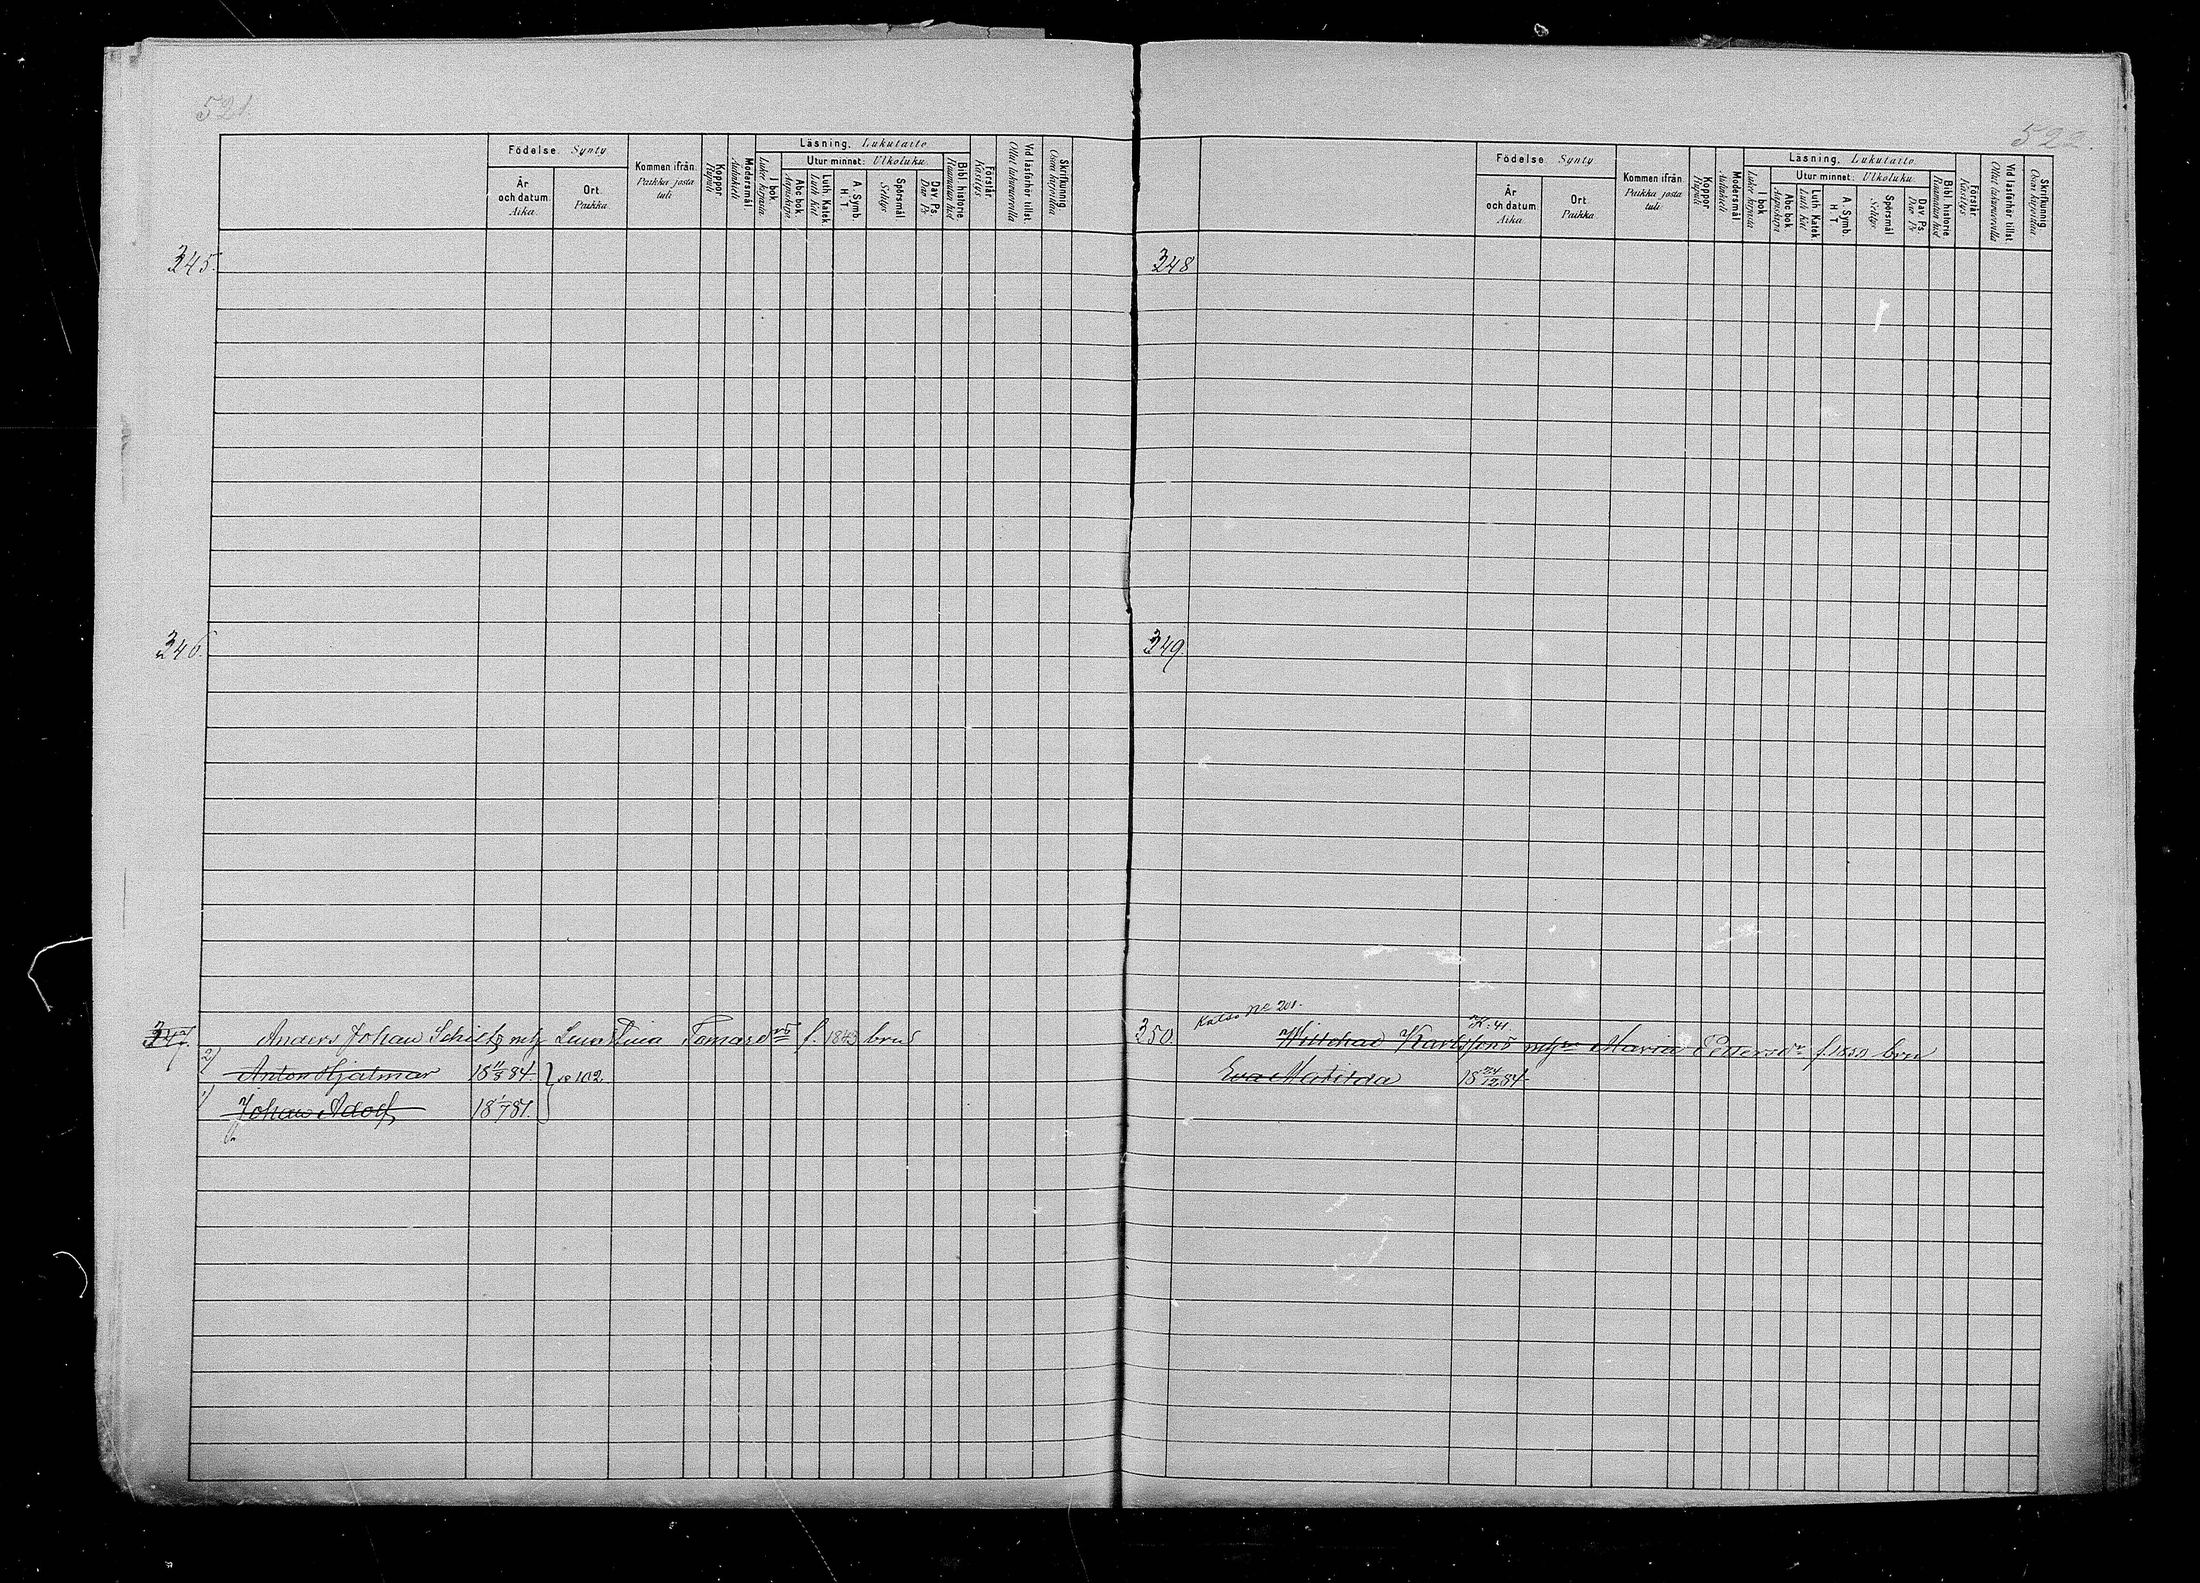 521.
Födelse. Synty.
Kommen ifrån. Paikka josta tuli
Koppor. Rupuli
Modersmål. Äidinkieli
Läsning. Lukutaito.
Utur minnet: Ulkoluku.
Förstår. Käsitys
Vid läsförhör tillst. Ollut lukuvuorolla
Skrifkunnig. Osaa kirjoittaa
År och datum. Aika.
Ort. Paikka.
I bok. Lukee kirjasta.
Abc bok. Aapiskirja
Luth. Katek. Luth. Kat.
A. Symb. H. T.
Spörsmål Selitys
Dav. Ps. Daw. Ps.
Bibl. historie Raamatun hist.
345.
346.
347. Anders Johan Schiltz mhj Lena Stina Tomasdrs f. 1843 brns
2) Anton Hjalmar 18 1/3 84. } se 102
1) Johan Adolf 18 1/7 81.
522.
Födelse. Synty.
Kommen ifrån. Paikka josta tuli
Koppor. Rupuli
Modersmål. Äidinkieli
Läsning. Lukutaito.
Utur minnet: Ulkoluku.
Förstår. Käsitys
Vid läsförhör tillst. Ollut lukuvuorolla
Skrifkunnig. Osaa kirjoittaa
År och datum. Aika.
Ort. Paikka.
I bok. Lukee kirjasta
Abc bok. Aapiskirja
Luth. Katek. Luth. Kat.
A. Symb. H. T.
Spörsmål Selitys
Dav. Ps. Daw. Ps.
Bibl. historie Raamatun hist.
348
349.
Katso No 201.
K: 41.
350. Karlssons Maria f. 1853 brn
Eva Matilda 18 24/12 84